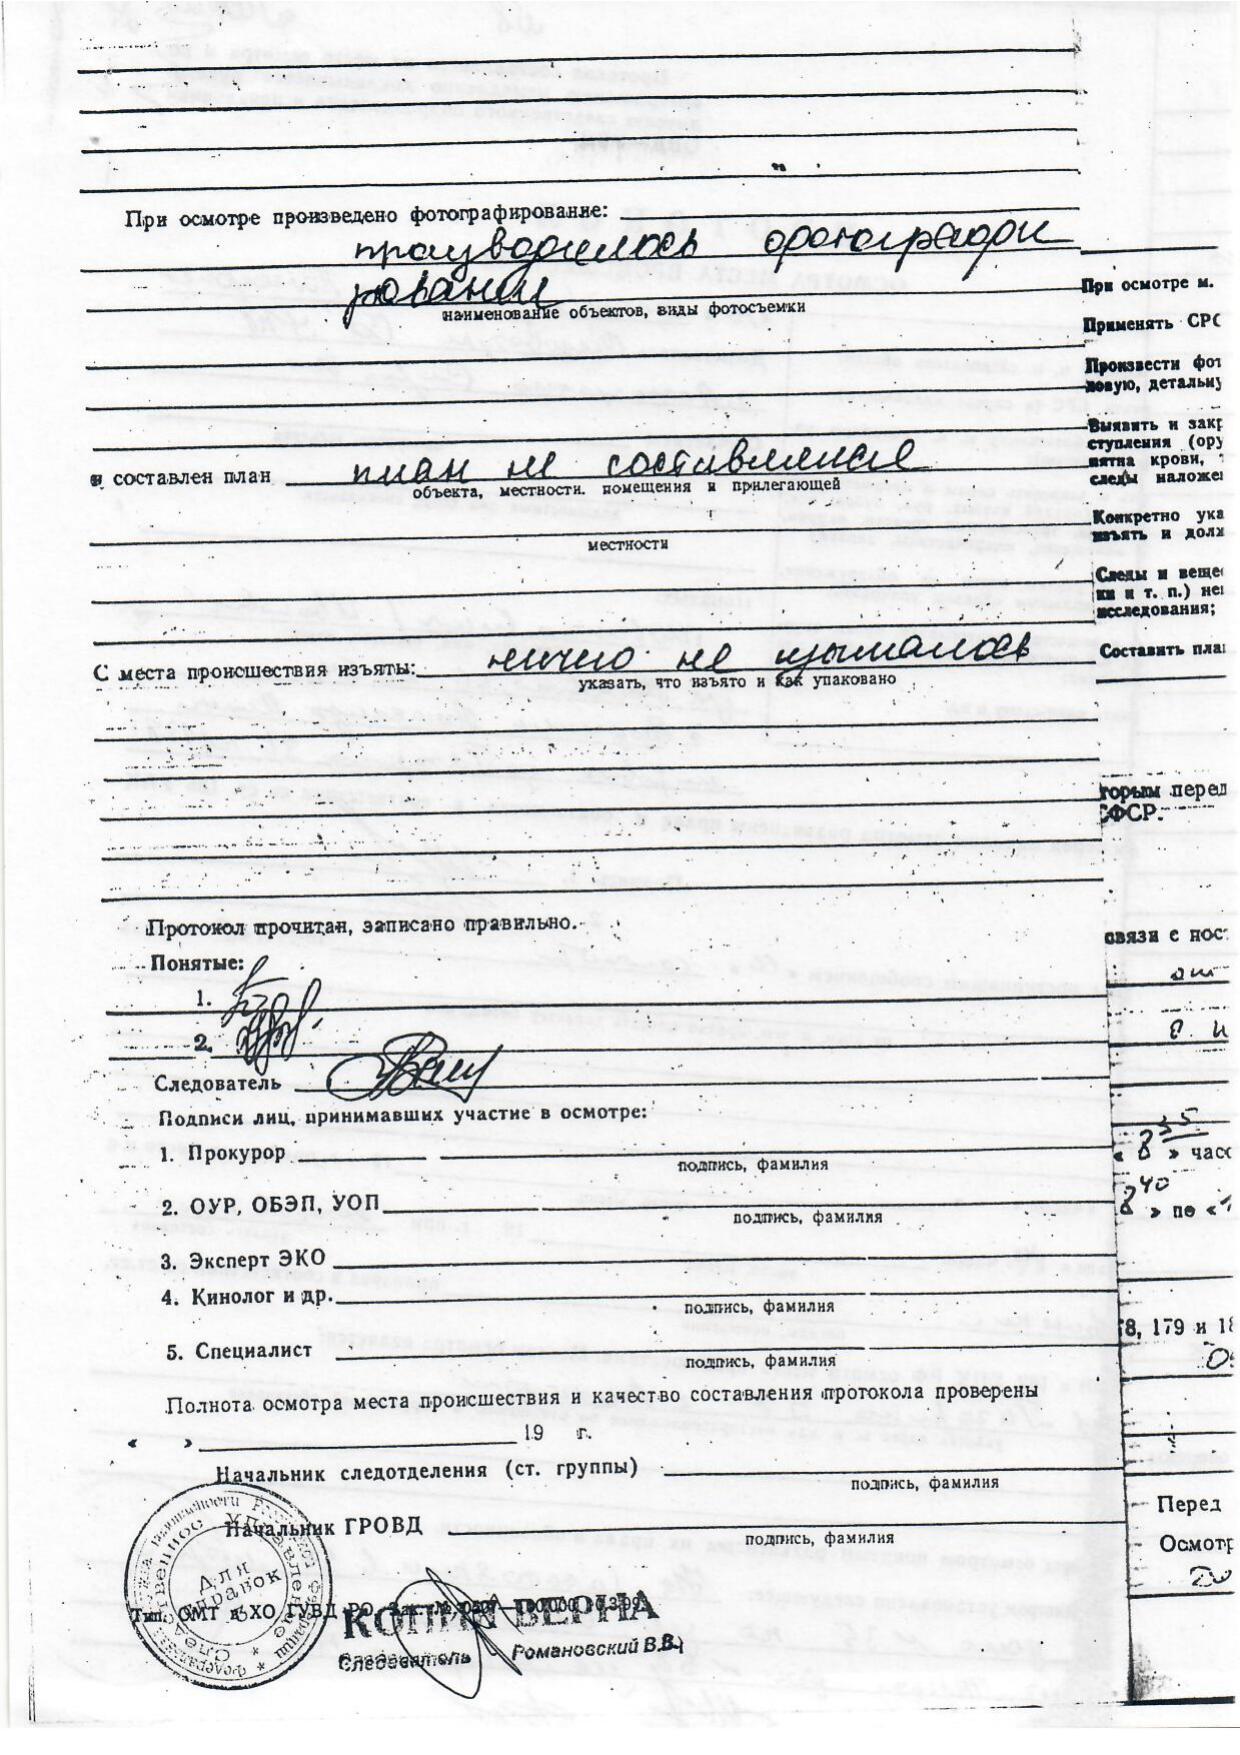 При осмотре произведено фотографирование:
производилось фотографи
рование
наименование объектов, виды фотосъемки
и составлен план план не составлялся
объекта, местности. помещения и прилегающей
местности
С места происшествия изъяты: ничего не изымалось
указать, что изъято и как упаковано
Протокол прочитан, записано правильно.
Понятые:
1.
2.
Следователь
Подписи лиц, принимавших участие в осмотре:
1. Прокурор
подпись, фамилия
2. ОУР, ОБЭП, УОП
подпись, фамилия
3. Эксперт ЭКО
4. Кинолог и др.
подпись, фамилия
5. Специалист
подпись, фамилия
Полнота осмотра места происшествия и качество составления протокола проверены
« » 19 г.
Начальник следотделения (ст. группы)
подпись, фамилия
Начальник ГРОВД
подпись, фамилия
Тип. ОМТ и ХО ГУВД РО
КОПИЯ ВЕРНА
Следователь Романовский В.В.
Следственное Управление
Для
справок
При осмотре м.
Применять СРС
Произвести фот
ловую, детальну
Выявить и закр
ступления (ору
пятна крови,
следы наложе
Конкретно ука
изъять и долж
Следы и веще
ки и т. п.) не
исследования;
Составить пла
торым перед
СФСР.
связи с пос
« 8 35 » час
8 40 » по «
8, 179 и 18
Перед
Осмотр